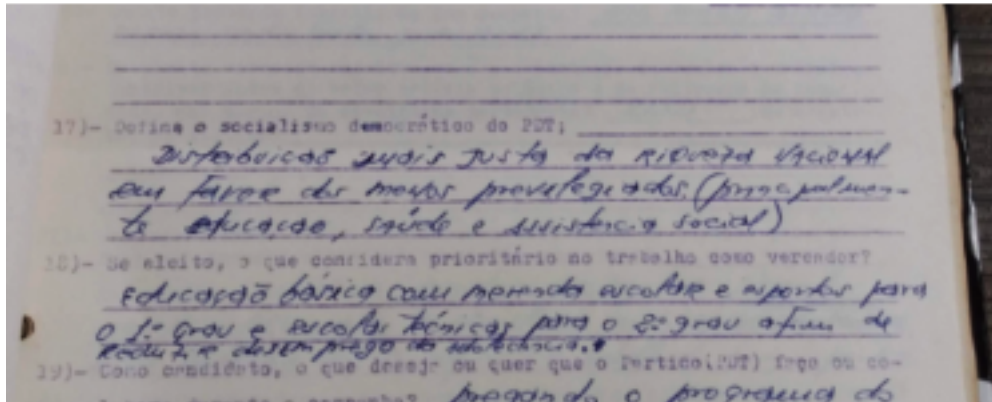 17)- Defina o socialismo democrático do PDT;
Distribuição mais justa da riqueza nacional
em favor dos menos previlegiados. (principalmen-
te educação, saúde e assistência social)
18)- Se eleito, o que considera prioritário no trabalho como vereador?
Educação básica com merenda escolar e esportes para
o 1º grau e escolas técnicas para o 2º grau afim de
reduzir o desemprego da adolecência.
19)- Como candidato, o que deseja ou quer que o Partido(PDT) faça ou co-
pregando o programa do